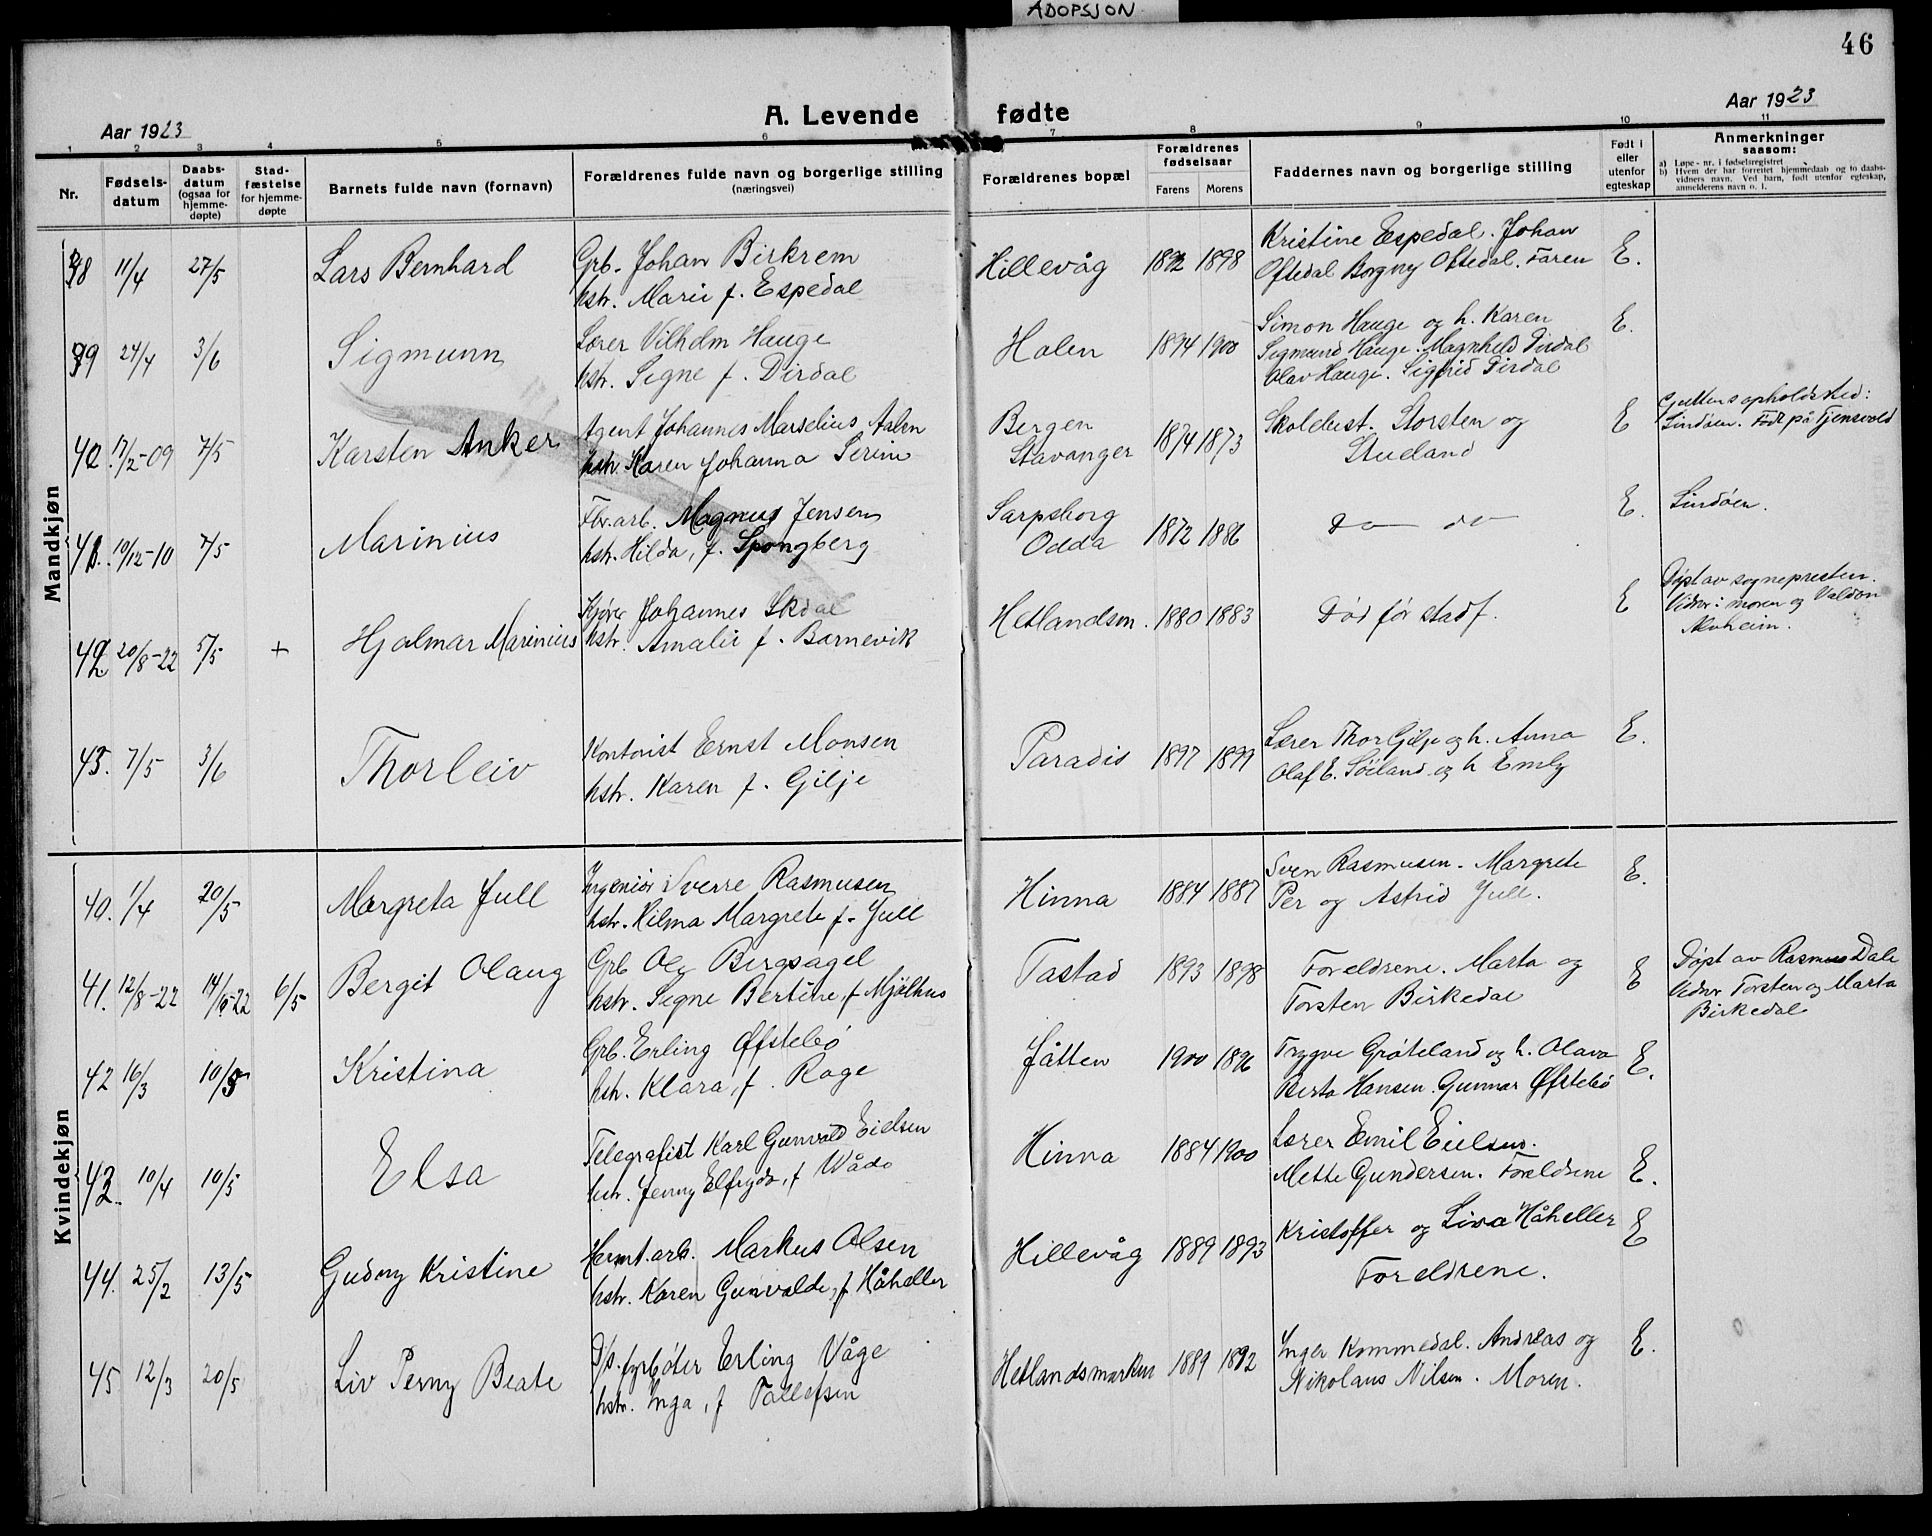 ADOPSJON
46
A. Levende fødte
Aar 1923
Aar 1923
1 2 3 4 5 6 7 8 9 10 11
Nr.
Fødsels-
datum
Daabs-
datum
(ogsaa for
hjemme-
døpte)
Stad-
fæstelse
for hjemme-
døpte
Barnets fulde navn (fornavn)
Forældrenes fulde navn og borgerlige stilling
(næringsvei)
Forældrenes bopæl
Forældrenes
fødselsaar
Farens Morens
Faddernes navn og borgerlige stilling
Født i
eller
utenfor
egteskap
Anmerkninger
saasom:
a) Løpe-nr. i fødselsregistret
b) Hvem der har forrettet hjemmedaab og to daabs-
vidners navn. Ved barn, født utenfor egteskap,
anmelderens navn o. l.
Mandkjøn
38 11/4 27/5 Lars Bernhard
Grb. Johan Birkrem
hstr. Marie f. Espedal
Hillevåg 1892 1898
Kristine Espedal. Johan
Oftedal Borgny Oftedal. Faren
E.
39 24/4 3/6 Sigmunn
Lærer Vilhelm Hauge
hstr. Signe f. Dirdal
Holen 1894 1900
Simon Hauge og h. Karen
Sigmund Hauge. Magnhild Dirdal
Olav Hauge. Sigfrid Dirdal
E.
40. 17/2-09 7/5 Karsten Anker
Agent Johannes Marselius Aalen
hstr. Karen Johanna Serine
Bergen
Stavanger
1874 1873
Skolebest. Storsten og
Stueland
E
Guttens opholdsted:
Lindøen. Født på Tjensvold
41. 10/12-10 7/5 Marinius
Fbr.arb. Magnus Jensen
hstr. Hilda, f. Spongberg
Sarpsborg
Odda
1872 1886
Do do
E.
Lindøen.
42 20/8-22 5/5 + Hjalmar Marinius
Kjører Johannes Skdal
hstr. Amalie f. Barnevik
Hetlandsm. 1880 1883
Død før stadf.
E
Døpt av sognepresten.
Vidner: moren og Valdon
43. 7/5 3/6 Thorleiv
Kontorist Ernst Monsen
hstr. Karen f. Gilje
Paradis 1897 1899
Lærer Thor Gilje og h. Anna
Olaf E. Söiland og h Emly
E.
Kvindekjøn
40. 1/4 20/5 Margreta Jull
Ingeniør Sverre Rasmusen
hstr. Hilma Margrete f. Jull
Hinna 1884 1887
Sven Rasmusen. Margrete
Per og Astrid Jull.
E.
41. 12/8-22 14/6-22 6/5 Bergit Olaug
Grb Ole Bergsagel
hstr. Signe Bertine, f Mjølhus
Tastad 1893 1898
Foreldrene. Marta og
Torsten Birkedal
E
Døpt av Rasmus Dale
Vidner Torsten og Marta
Birkedal
42 16/3 10/5 Kristina
Grb. Erling Øfstebö
hstr. Klara, f. Rage
Jåtten 1900 1896
Trygve Grøteland og h. Olava
Berta Hansen. Gunnar Øfstebö
E.
43. 10/4 10/5 Elsa
Telegrafist Karl Gunvald Eielsen
hstr. Jenny Elfryda, f Wådo
Hinna 1884 1900
Lærer Emil Eielsen.
Mette Gundersen. Foreldrene
E.
44. 25/2 13/5 Gudny Kristine
Hermt.arb. Markus Olsen
hstr. Karen Gunvalde, f Håheller
Hillevåg 1889 1893
Kristoffer og Liva Håheller
Foreldrene.
E
45 12/3 20/5 Liv Perny Beate
D/s. fyrbøter Erling Våge
hstr. Inga, f Tollefsen
Hetlandsmarken 1889 1892
Inger Kommedal. Andreas og
Nikolaus Nilsen. Moren.
E.